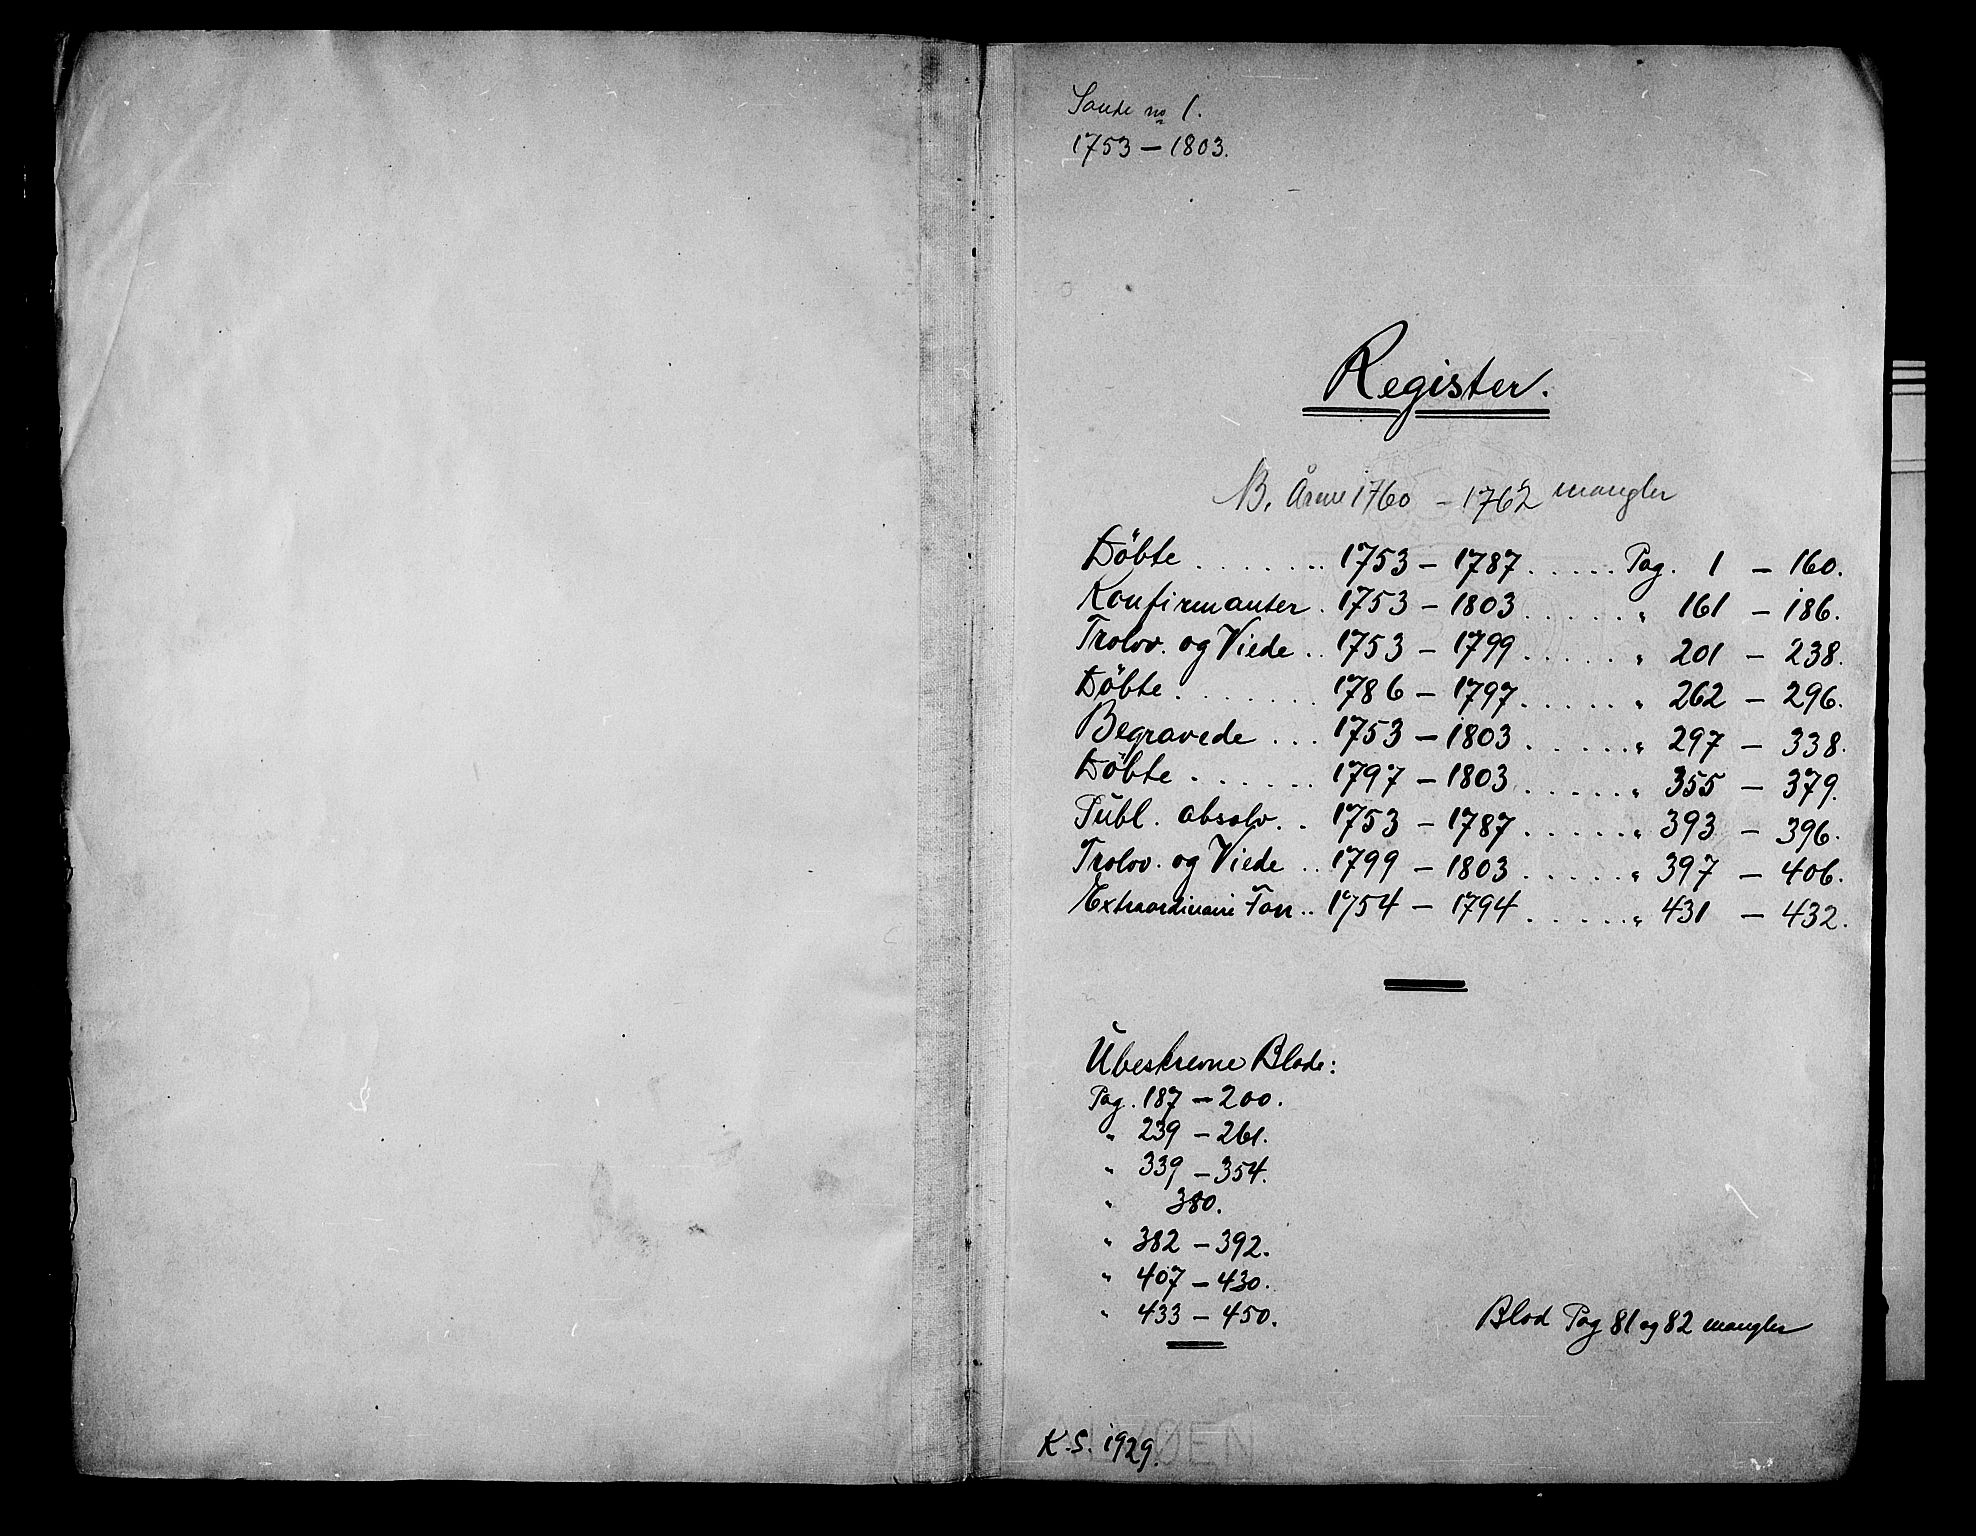 Sande no 1.
1753 – 1803.
Register.
NB. Årene 1760 – 1762 mangler
Döbte ........ 1753 – 1787 ..... Pag. 1 – 160.
Konfirmanter . 1753 – 1803 ...... " 161 – 186.
Trolov. og Viede .. 1753 – 1799 ...... " 201 – 238.
Döbte ....... 1786 – 1797 ...... " 262 – 296.
Begravede ... 1753 – 1803 ...... " 297 – 338.
Döbte ...... 1797 – 1803 ...... " 355 – 379.
Publ. absolv. . 1753 – 1787 ...... " 393 – 396.
Trolov. og Viede .. 1799 – 1803 ...... " 397 – 406.
Extraordinaire .. 1754 – 1794 ...... " 431 – 432.
Ubeskrevne Blade:
Pag. 187 – 200.
" 239 – 261.
" 339 – 354.
" 380.
" 382 – 392.
" 407 – 430.
" 433 – 450.
Blad Pag 81 og 82 mangler
K.S. 1929.